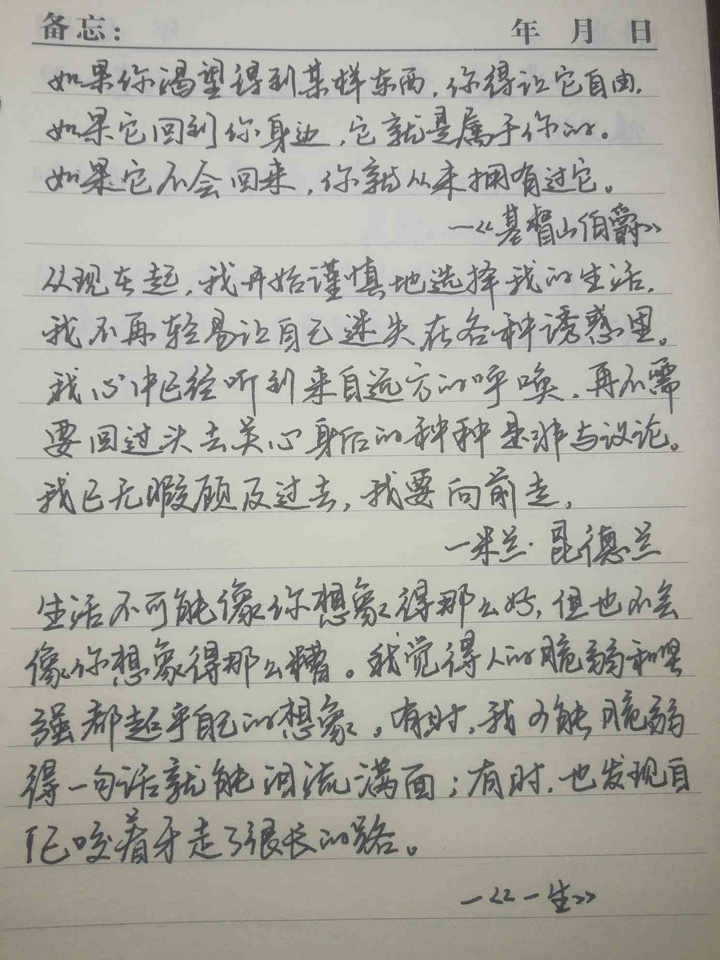 备忘： 年 月 日
如果你渴望得到某样东西，你得让它自由，
如果它回到你身边，它就是属于你的。
如果它不会回来，你就从来拥有过它。
—《基督山伯爵》
从现在起，我开始谨慎地选择我的生活，
我不再轻易让自己迷失在各种诱惑里。
我心中已经听到来自远方的呼唤，再不需
要回过头去关心身后的种种是非与议论。
我已无暇顾及过去，我要向前走。
—米兰·昆德兰
生活不可能像你想象得那么好，但也不会
像你想象得那么糟。我觉得人的脆弱和坚
强都超乎自己的想象。有时，我可能脆弱
得一句话就能泪流满面；有时，也发现自
己咬着牙走了很长的路。
—《一生》